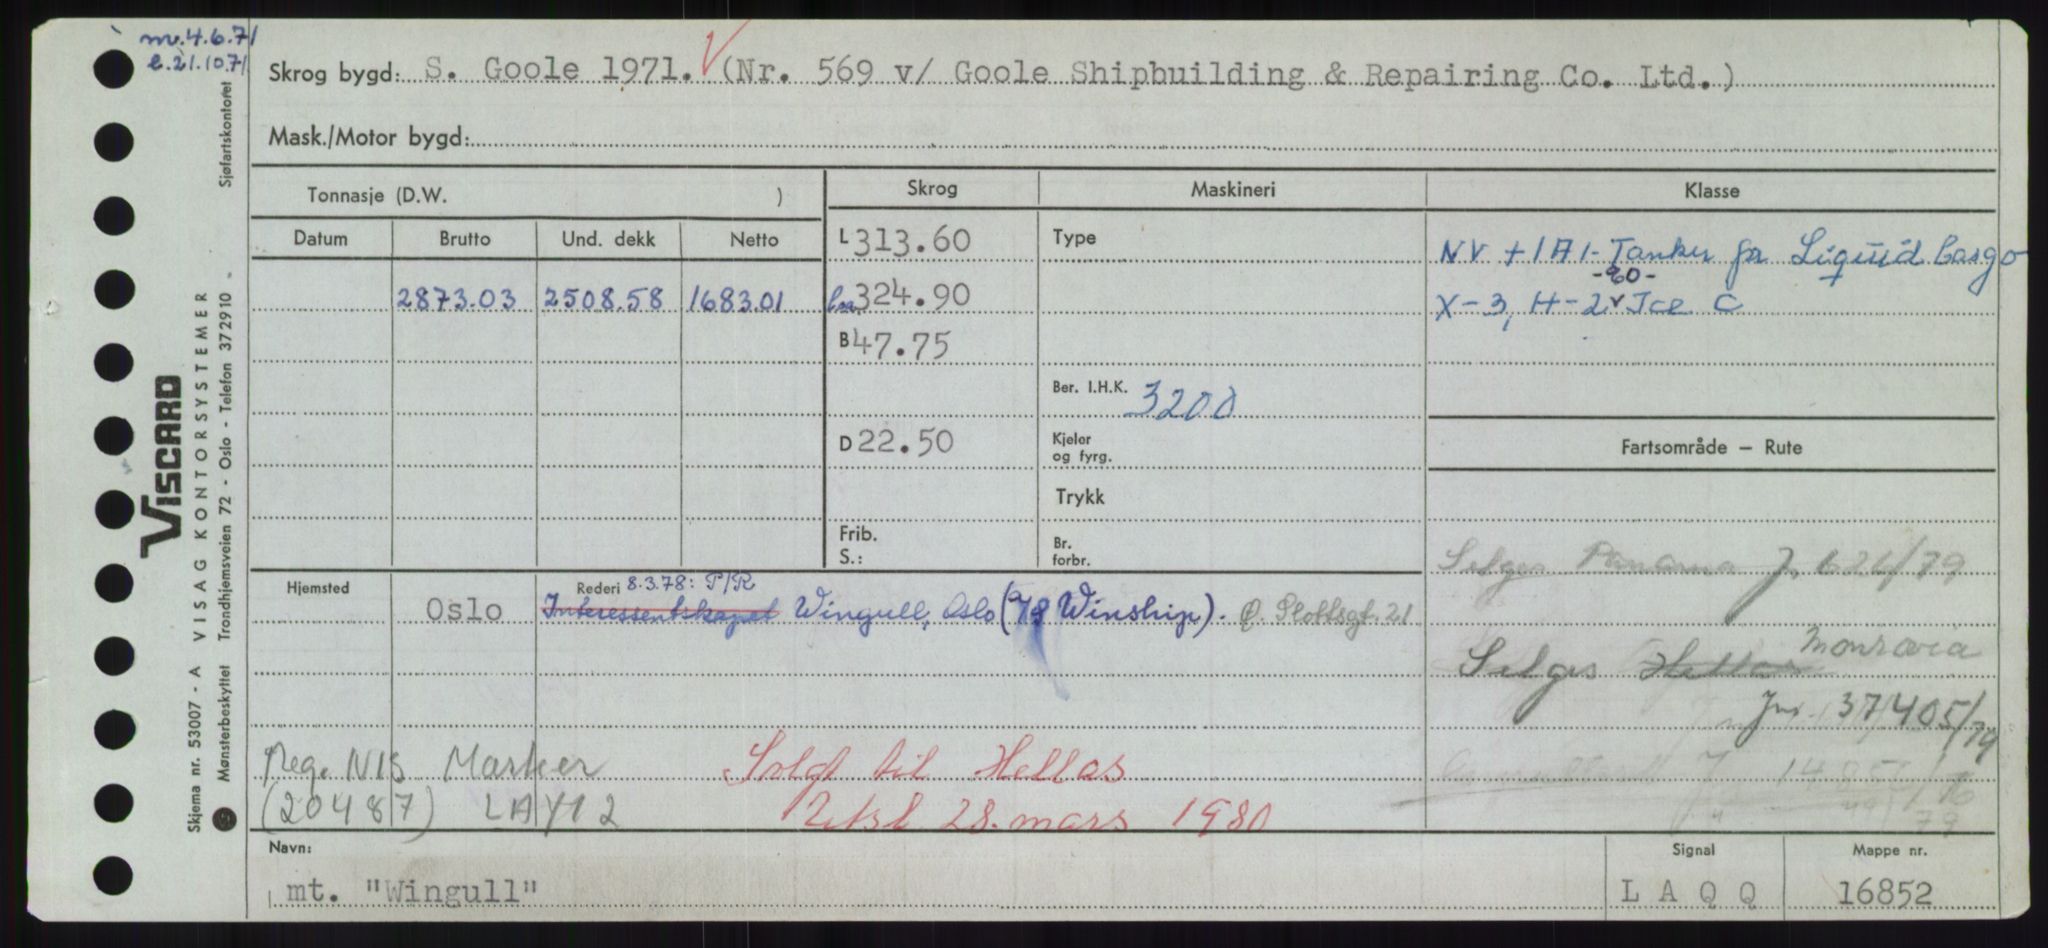 mv. 4.6.71
e. 21.10.71
Skrog bygd: S. Goole 1971. (Nr. 569 v/ Goole Shipbuilding & Repairing Co. Ltd.)
Mask./Motor bygd:
Tonnasje (D.W. )
Skrog
Maskineri
Klasse
Datum Brutto Und. dekk Netto
2873.03 2508.58 1683.01
L 313.60
Loa 324.90
B 47.75
D 22.50
Frib.
S.:
Type
Ber. I.H.K. 3200
Kjeler
og fyrg.
Trykk
Br.
forbr.
NV +1A1- Tanker for Liquid Cargo
-90-
X-3, H-2 v Ice C
Fartsområde — Rute
Selges Panama J. 626/79
Selges Hellas Monrovia
Jnr. 37405/79
J 1485 /76
79
Hjemsted
Oslo
Rederi 8.3.78: P/R
Interessentskapet Wingull, Oslo (A/S Winship). Ø. Slottsgt. 21
Reg. NIS Marker
(20487) LAYI2
Solgt til Hellas
Utsl 28. mars 1980
Navn:
mt. "Wingull"
Signal
L A Q Q
Mappe nr.
16852
Skjema nr. 53007 - A VISAG KONTORSYSTEMER
VISCARD
Mønsterbeskyttet Trondhjemsveien 72 - Oslo - Telefon 372910
Sjøfartskontoret